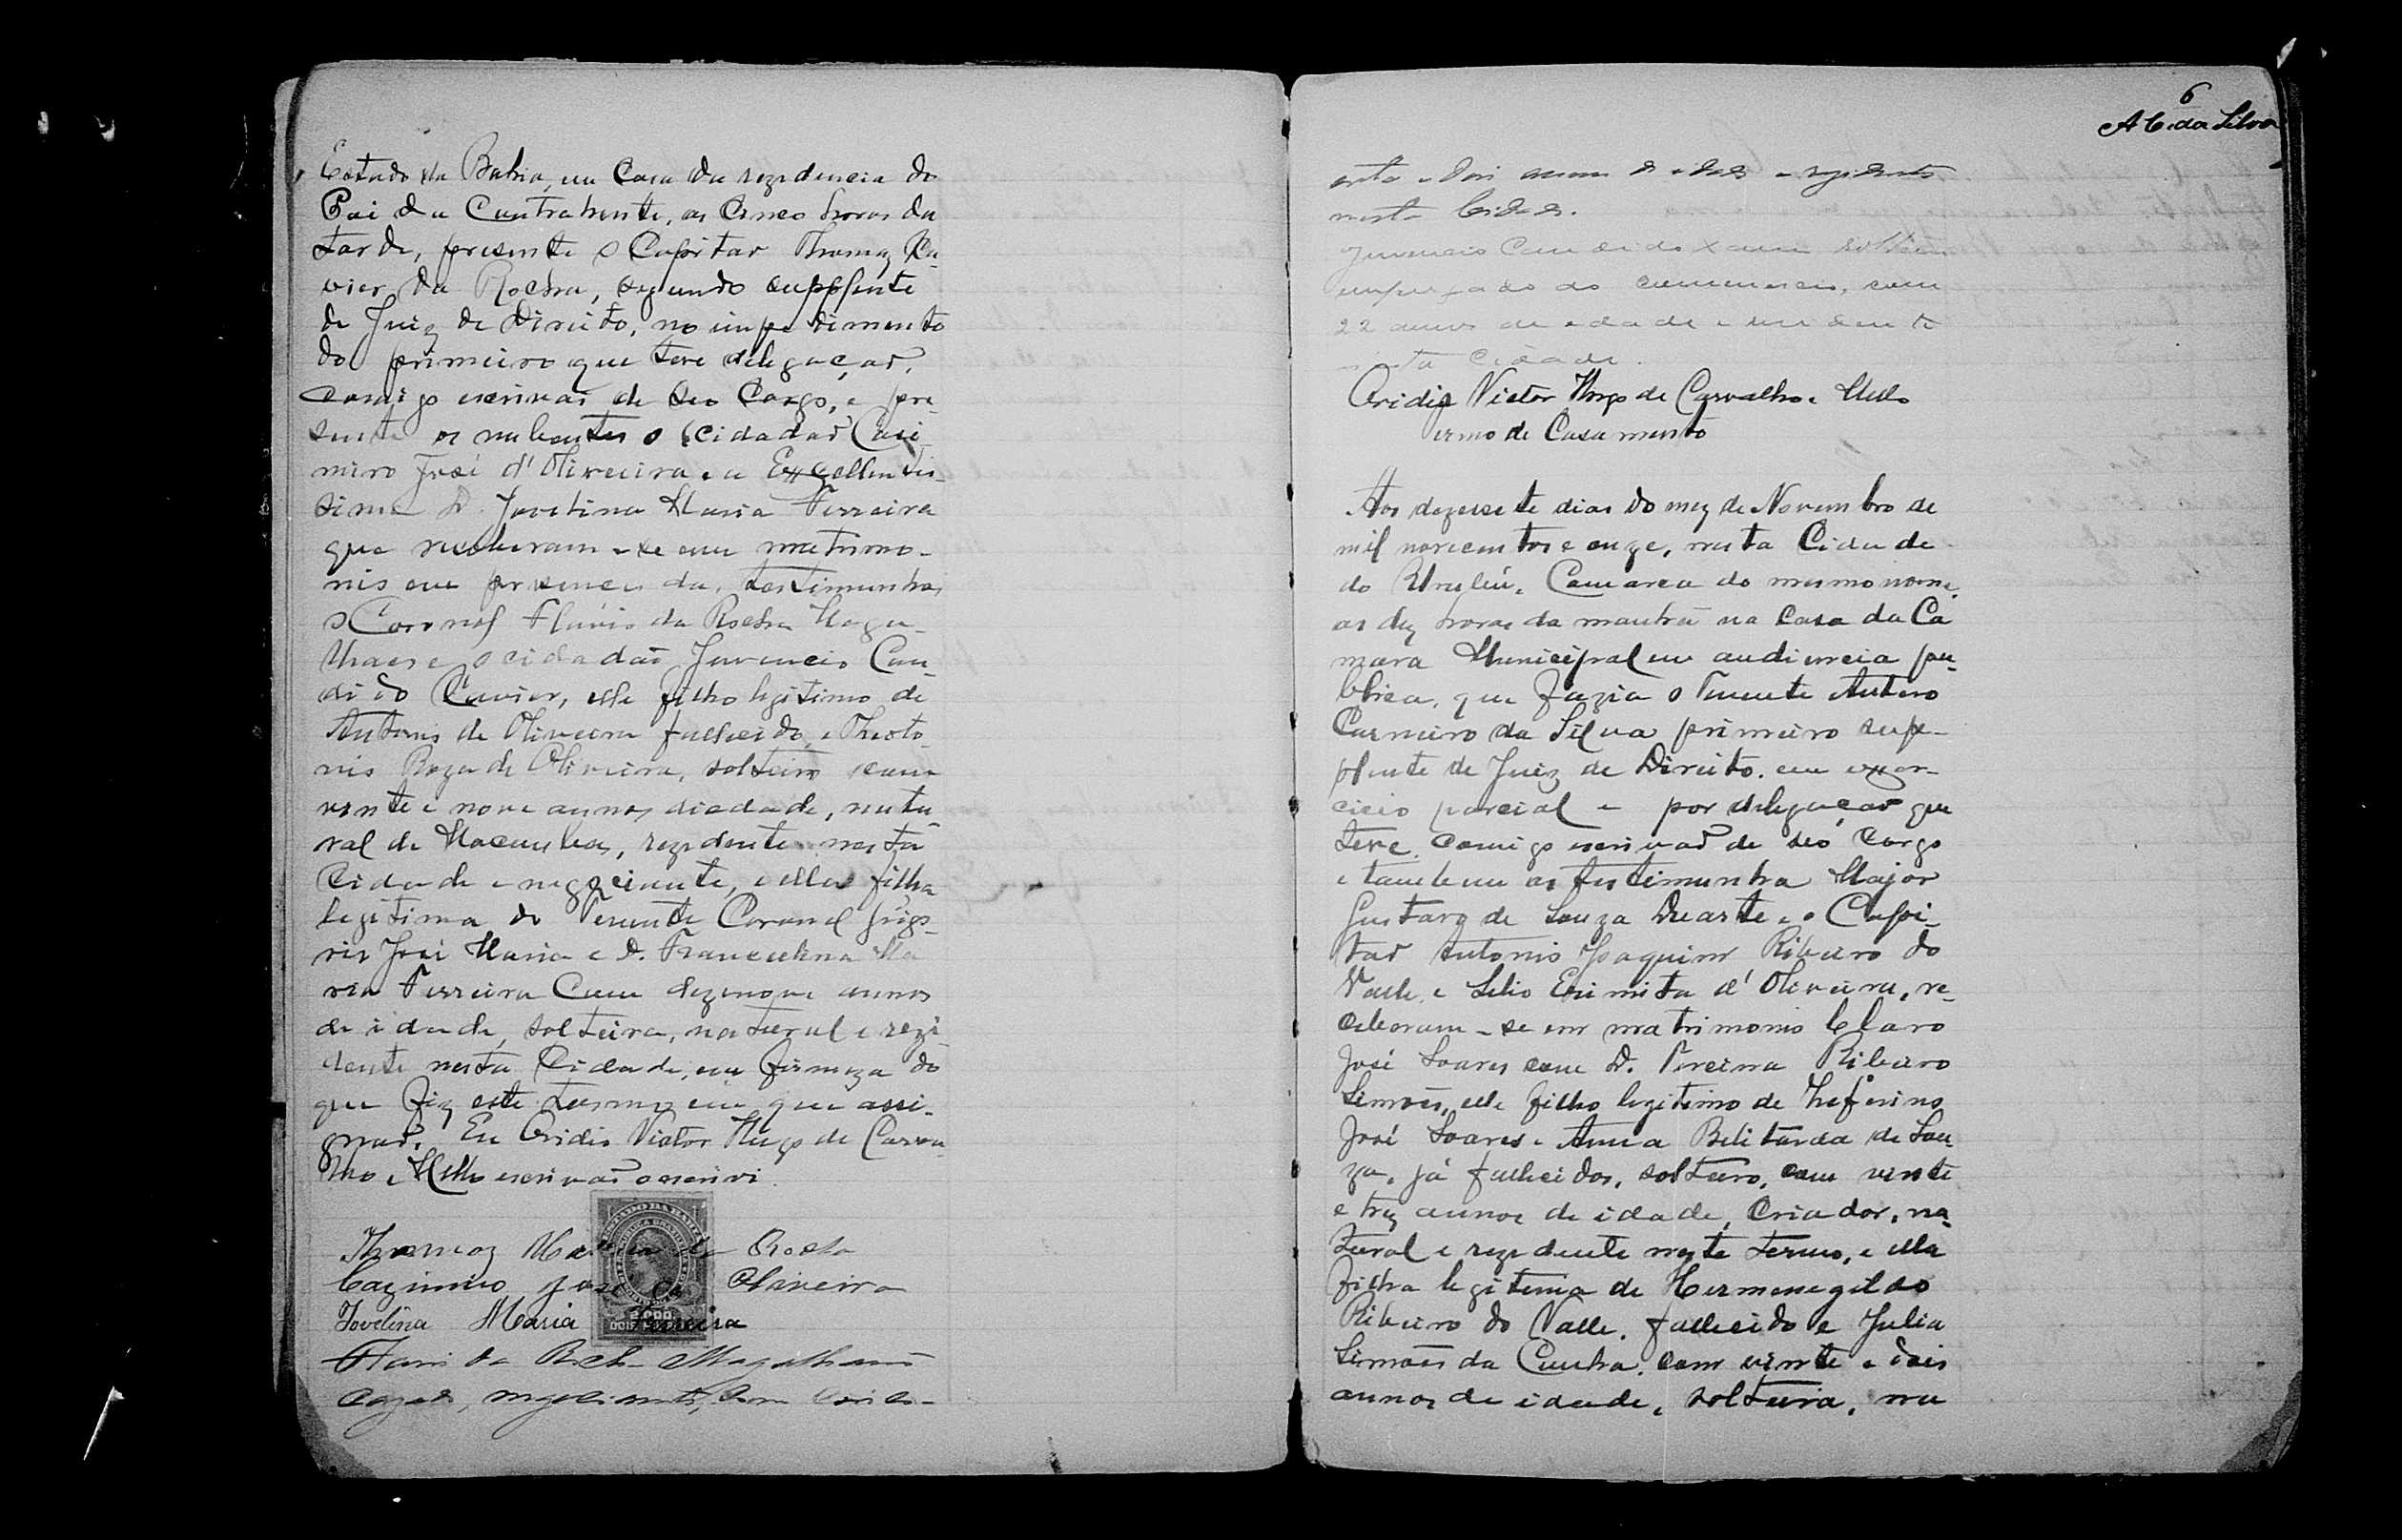 Estado da Bahia, em Casa da rezidencia do
Pai da Contrahente, as Cinco horas da
tarde, presente o Capitão Thomaz Xa-
vier da Rocha, segundo supplente
de Juiz de Direito, no impedimento
do primeiro que teve delegação,
comigo escrivão de seo Cargo, e pre-
sente os nubentes o cidadão Casi-
miro José d'Oliveira e a Excellentis-
sima D. Jovelina Maria Ferreira
que receberam-se em matrimo-
nio em presença das testimunhas
o Coronel Flávio da Rocha Maga-
lhaes e o cidadão Juvencio Can-
dido Xavier, elle filho legitimo de
Antonio de Oliveira fallecido, e Theoto-
nia Roza de Oliveira, solteiro com
vinte e nove annos diedade, natu-
ral de Macaubas, rezidente nesta
Cidade e negociante, e ella filha
legitima do Tenente Coronel
José Maria e D. Francelina Ma
ria Ferreira Com dezenove annos
de idade, solteira, natural e rezi-
dente nesta Cidade, em firmeza do
que fiz este termo em que assi-
gnão. Eu Ovidio Victor Hugo de Carva-
lho e Mello escrivão o escrevi.
ESTADO DA BAHIA
Thomaz Xavier da Rocha
Cazimiro José de Oliveira
Jovelina Maria Ferreira
Flavio da Rocha Magalhães
Cazado, negociante, com
6
A C da Silva
enta e dois annos de idade e rezidente
nesta Cidade.
Juvencio Candido Xavier solteiro
empregado do commercio, com
22 annos de edade e rezidente
nesta cidade.
Ovidio Victor Hugo de Carvalho e Mello
Termo de Casamento
Aos dezesete dias do mez de Novembro de
mil novecentos e onze, nesta Cidade
do Urubú, Comarca do mesmo nome,
as dez horas da manhã na Casa da Ca
mara Municipal em audiencia pu-
blica, que fazia o Tenente Antero
Carneiro da Silva primeiro sup-
plente de Juiz de Direito, em exer-
cicio parcial e por delegação que
teve, comigo escrivão de seo Cargo
e tambem as testimunha Major
Gustavo de Souza Duarte e o Capi-
tão Antonio Joaquim Ribeiro do
Valle, e Lelio Erimita d'Oliveira, re-
ceberam-se em matrimonio Claro
José Soares com D. Ribeiro
Simões, elle filho legitimo de Zeferino
José Soares e Anna Belitarda de Sou-
za, já fallecidos, solteiro, com vinte
e trez annos de idade, Criador, na-
tural e rezidente neste termo, e ella
filha legitima de Hermenegildo
Ribeiro do Valle, fallecido e Julia
Simões da Cunha, com vinte e dois
annos de idade, solteira, na